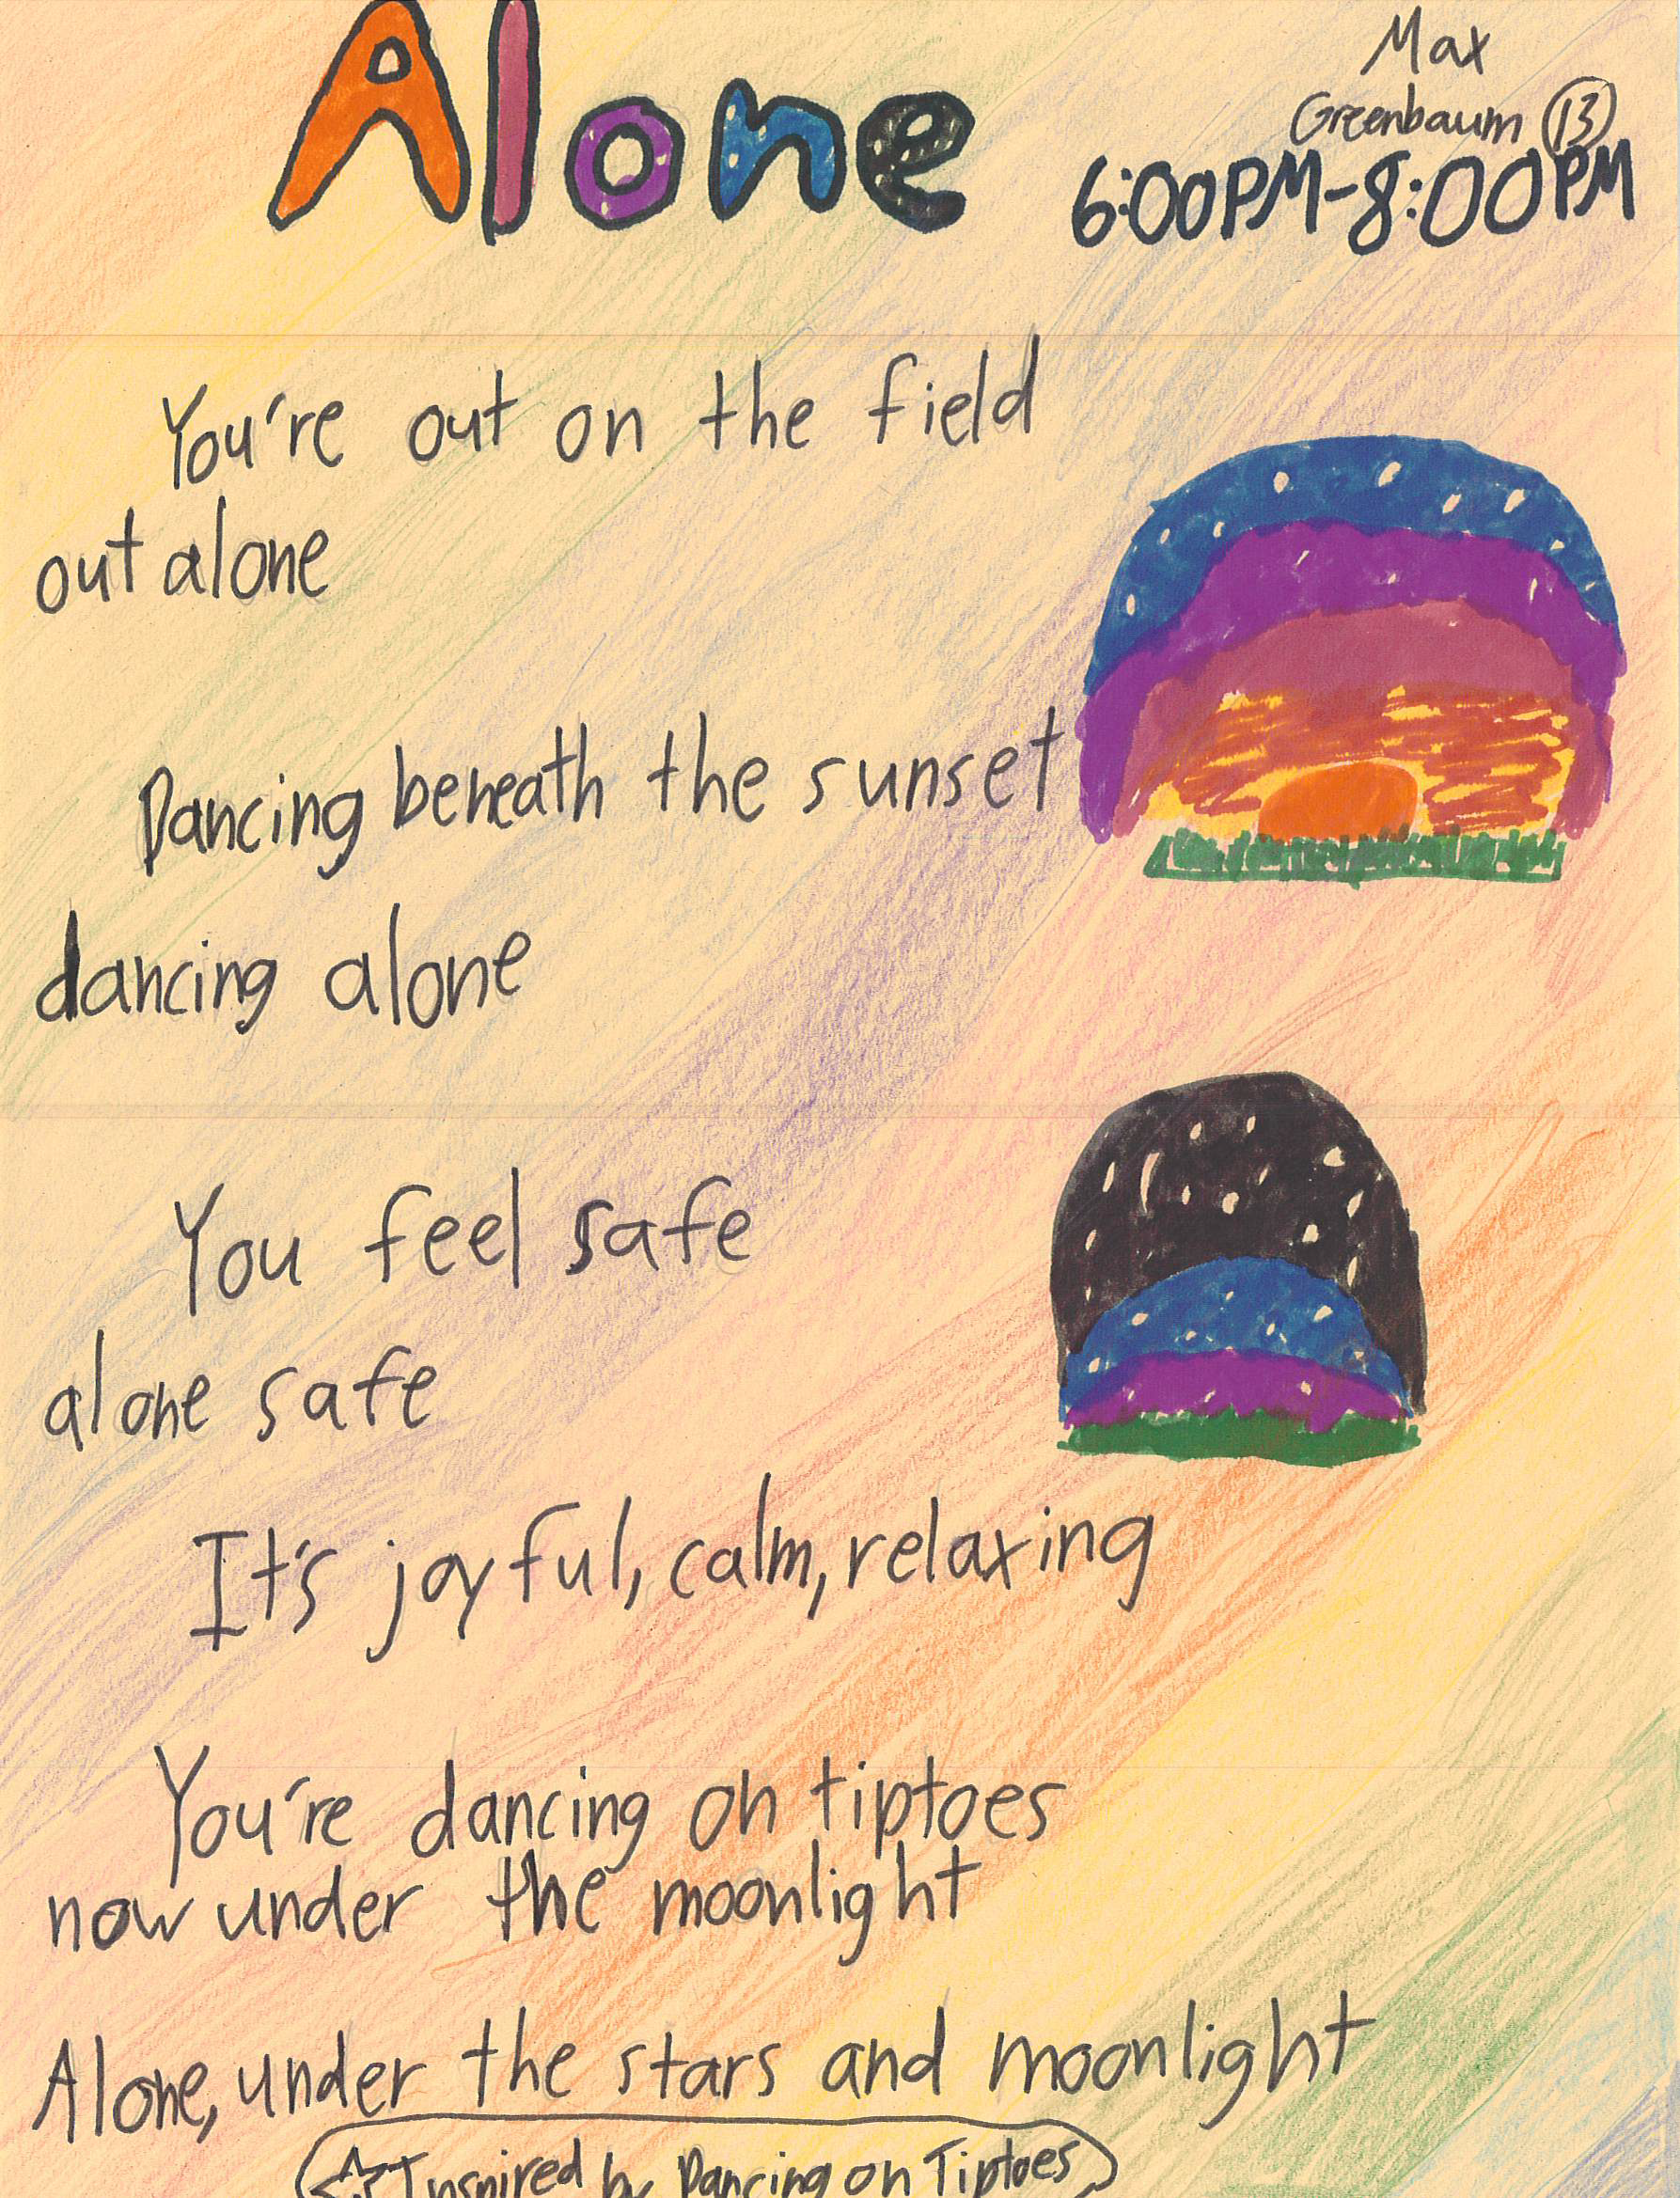 Alone
Max
Greenbaum 13
6:00PM-8:00PM
You're out on the field
out alone
Dancing beneath the sunset
dancing alone
You feel safe
alone safe
It's joyful, calm, relaxing
You're dancing on tiptoes
now under the moonlight
Alone, under the stars and moonlight
Inspired by Dancing on Tiptoes